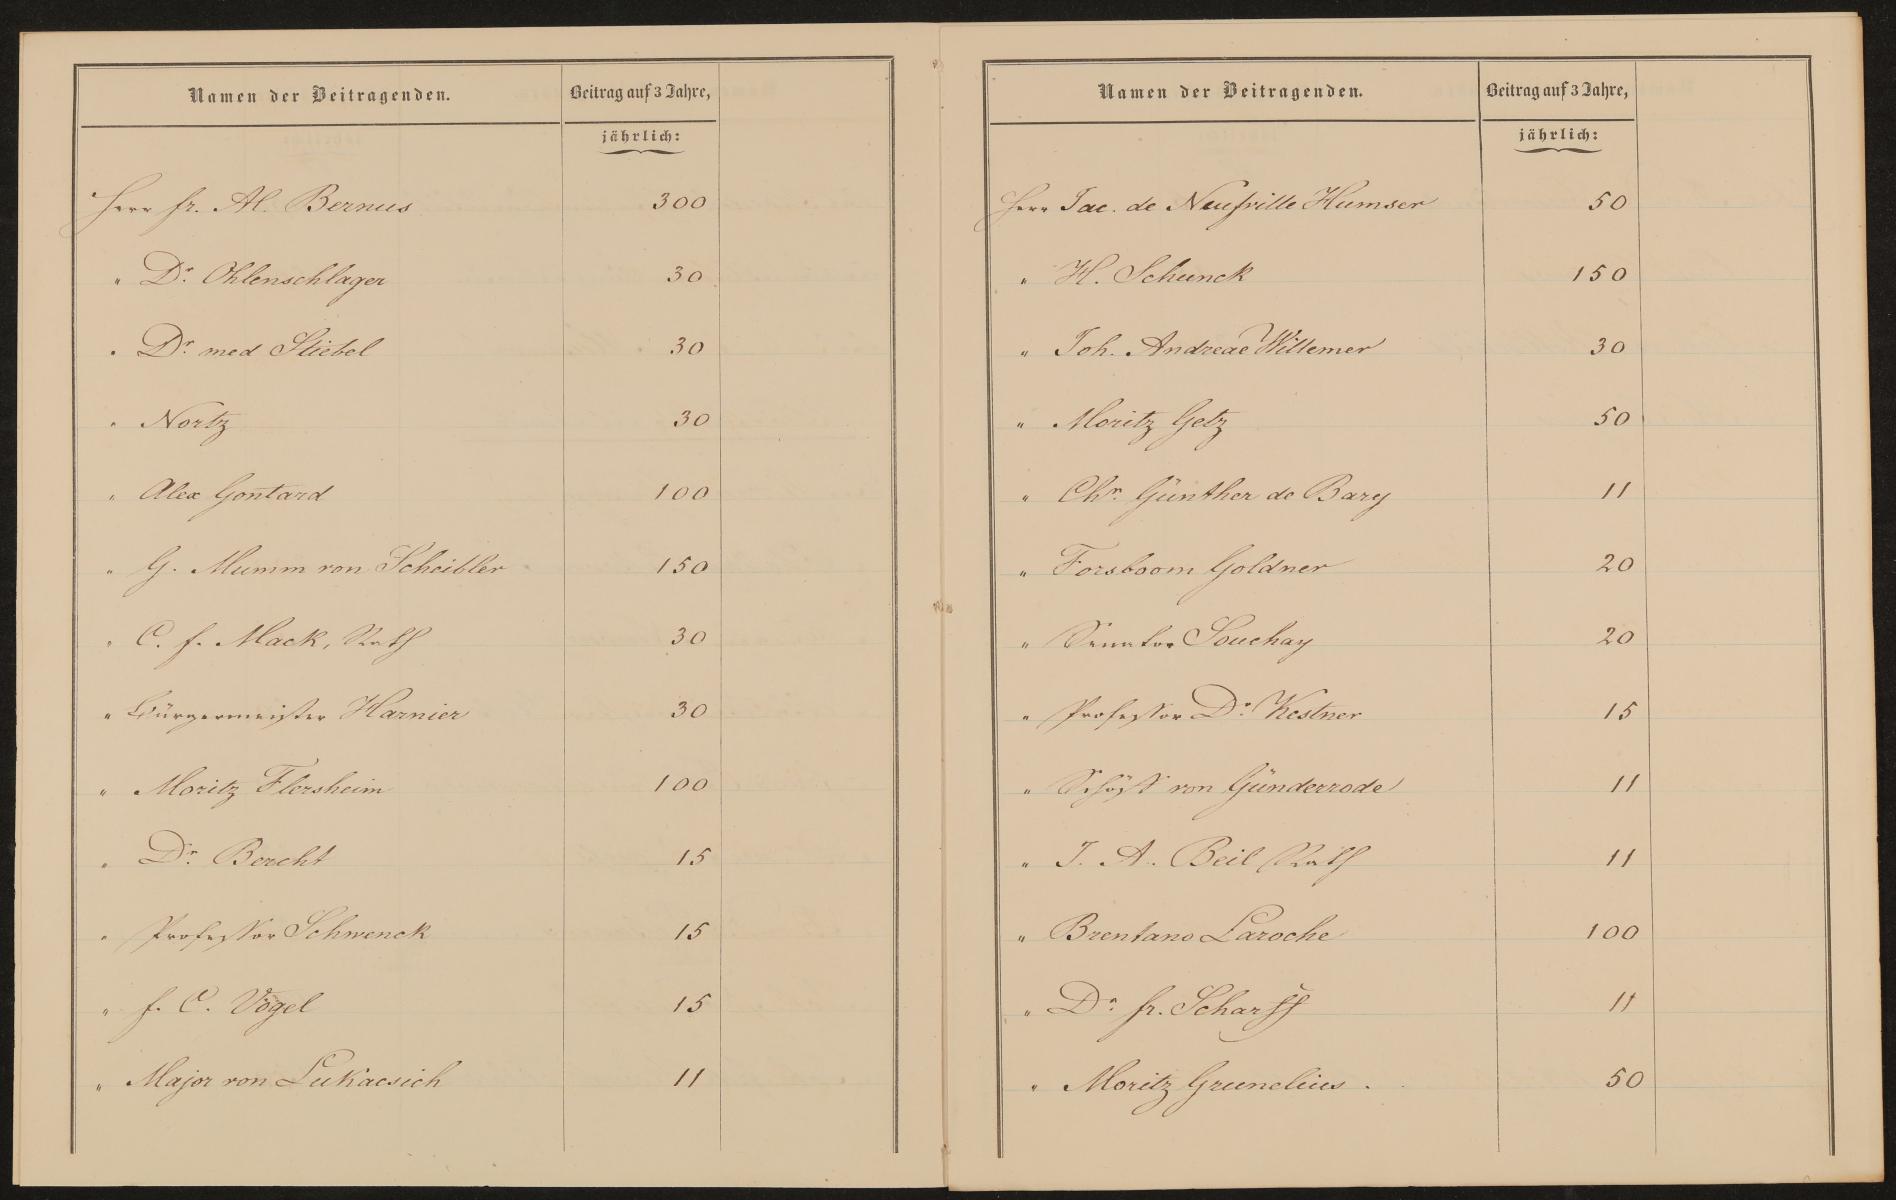 Namen der Beitragenden. Beitrag auf 3 Jahre,
jährlich:
Herr Fr. Al. Bernus 300
" Dr. Ohlenschlager 30
" Dr. med Stiebel 30
" Nortz 30
" Alex Gontard 100
" G. Mumm von Scheibler 150
" C. F. Mack, Rath 30
" Bürgermeister Harnier 30
" Moritz Flersheim 100
" Dr. Bercht 15
" Professor Schwenck 15
" F. C. Vogel 15
" Major von Lukacsich 11
Namen der Beitragenden. Beitrag auf 3 Jahre,
jährlich:
Herr Jac. de Neufville Humser 50
" H. Schunck 150
" Joh. Andreae Willemer 30
" Moritz Getz 50
" Chr. Günther de Bary 11
" Forsboom Goldner 20
" Senator Souchay 20
" Professor Dr. Kestner 15
" Schöff von Günderrode 11
" J. A. Beil Rath 11
" Brentano Laroche 100
" Dr. Fr. Scharff 11
" Moritz Grunelius. 50